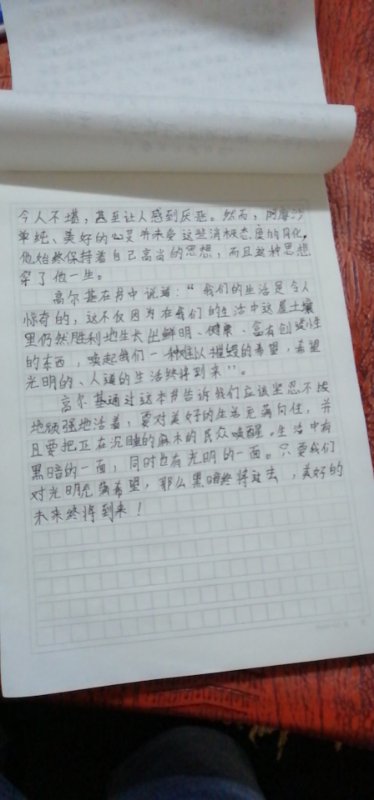 令人不堪，甚至让人感到厌恶。然而，阿廖沙
单纯、美好的心灵并未受这些消极态度的同化，
他始终保持着自己高尚的思想，而且这种思想
穿了他一生。
高尔基在书中说道："我们的生活是令人
惊奇的，这不仅因为在我们的生活中这层土壤
里仍然胜利地生长出鲜明、健康、富有创造性
的东西，唤起我们一种难以摧毁的希望，希望
光明的、人道的生活终将到来"。
高尔基通过这本书告诉我们应该坚忍不拔
地顽强地活着，要对美好的生活充满向往，并
且要把正在沉睡的麻木的民众唤醒。生活中有
黑暗的一面，同时也有光明的一面。只要我们
对光明充满希望，那么黑暗终将过去，美好的
未来终将到来！